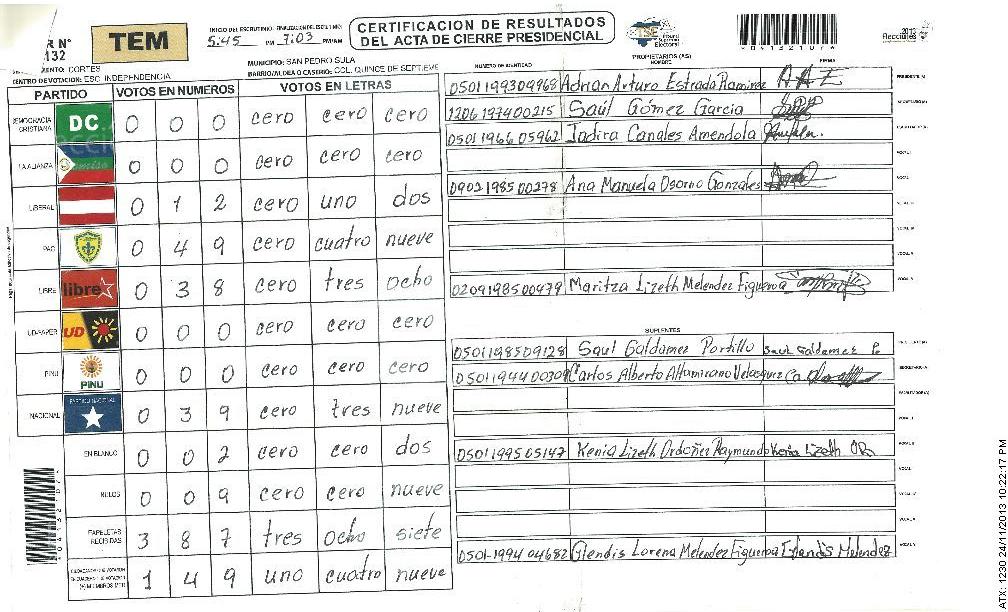 INICIO DEL ESCRUTINIO: FINALIZACION DEL ESCRUTINIO
5:45 PM 7:03 PM/AM
CERTIFICACION DE RESULTADOS
DEL ACTA DE CIERRE PRESIDENCIAL
TSE
Tribunal
Supremo
Electoral
2013
Elecciones
04132107
R N°
132
TEM
CORTES
MUNICIPIO: SAN PEDRO SULA
CENTRO DE VOTACION: ESC. INDEPENDENCIA
BARRIO/ALDEA O CASERIO: COL. QUINCE DE SEPT.EVE
PARTIDO VOTOS EN NUMEROS VOTOS EN LETRAS
DEMOCRACIA CRISTIANA DC 0 0 0 cero cero cero
LA ALIANZA 0 0 0 cero cero cero
LIBERAL 0 1 2 cero uno dos
PAC 0 4 9 cero cuatro nueve
LIBRE libre 0 3 8 cero tres ocho
UD-FAPER UD 0 0 0 cero cero cero
PINU PINU 0 0 0 cero cero cero
NACIONAL PARTIDO NACIONAL 0 3 9 cero tres nueve
EN BLANCO 0 0 2 cero cero dos
NULOS 0 0 9 cero cero nueve
PAPELETAS RECIBIDAS 3 8 7 tres ocho siete
1 4 9 uno cuatro nueve
PROPIETARIOS (AS)
NUMERO DE IDENTIDAD NOMBRE FIRMA
0501199309968 Adrian Arturo Estrada Ramirez A.A.E PRESIDENTE(A)
1206197400215 Saúl Gómez Garcia SECRETARIO(A)
0501196605962 Jadira Canales Amendola ESCRUTADOR(A)
VOCAL I
0902198500278 Ana Manuela Osorno Gonzales
0209198500479 Maritza Lizeth Melendez Figueroa
SUPLENTES
0501198509128 Saul Galdamez Portillo Saul Galdamez P.
0501194400309 Carlos Alberto Altamirano Velasquez
0501199505147 Kenia Lizeth Ordoñez Raymundo Kenia Lizeth OR
0501-199404682 Glendis Lorena Melendez Figueroa Glendis Melendez
ATX: 1230 24/11/2013 10:22:17 PM